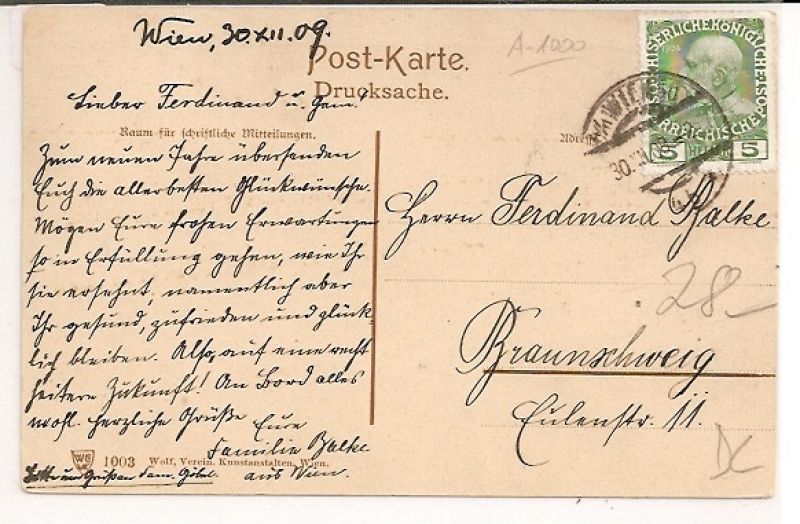 Wien, 30.XII.09.
Post-Karte.
Drucksache.
A-1000
Lieber Ferdinand u. Gem!
Raum für schriftliche Mitteilungen.
Zum neuen Jahre übersenden
Euch die allerbesten Glückwünsche.
Mögen Eure frohen Erwartungen
so in Erfüllung gehen, wie Ihr
sie ersehnt, namentlich aber
Ihr gesund, zufrieden und glück-
lich bleiben. Also, auf eine recht
heitere Zukunft! An Bord alles
wohl. Herzliche Grüße
Eure
Familie Balke
aus Wien.
Bitte um Grüße an Fam. Göbel.
1003 Wolf, Verein. Kunstanstalten, Wien.
KAISERLICHE KÖNIGLICHE
ÖSTERREICHISCHE POST
5 5
WIEN
30.XII
Herrn Ferdinand Balke
28-
Braunschweig
Eulenstr. 11.